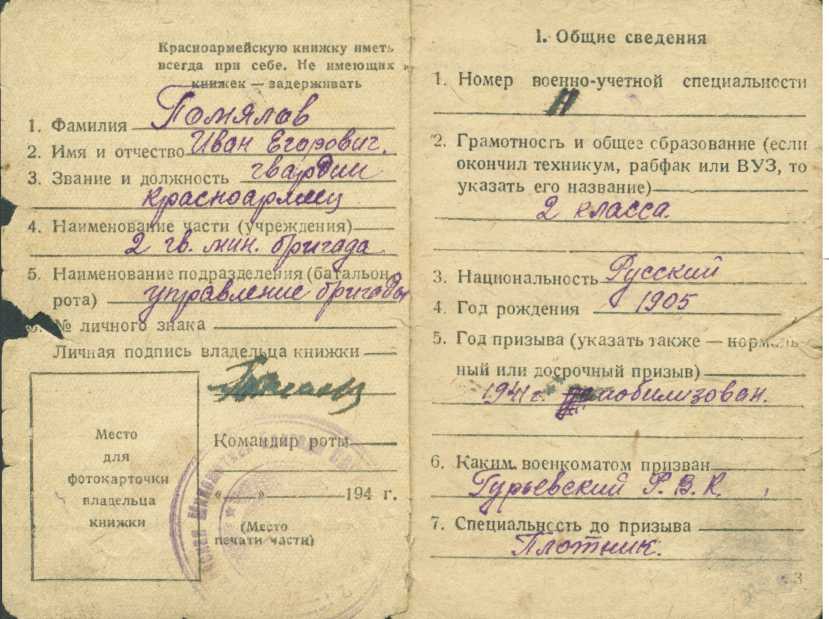 Красноармейскую книжку иметь
всегда при себе. Не имеющих
книжек — задерживать
1. Фамилия Помялов
2. Имя и отчество Иван Егорович.
3. Звание и должность гвардии
красноармеец
4. Наименование части (учреждения)
2 гв. мин. бригада
5. Наименование подразделения (батальон,
рота) управление бригады
№ личного знака
Личная подпись владельца книжки
Командир роты
Место
для
фотокарточки
владельца
книжки
„ “ 194 г.
(Место
печати части)
1. Общие сведения
1. Номер военно-учетной специальности
2. Грамотность и общее образование (если
окончил техникум, рабфак или ВУЗ, то
указать его название)
2 класса.
3. Национальность Русский
4. Год рождения 1905
5. Год призыва (указать также — нормаль-
ный или досрочный призыв)
1941 г. мобилизован.
6. Каким военкоматом призван
Гурьевский Р.В.К.
7. Специальность до призыва
Плотник.
3